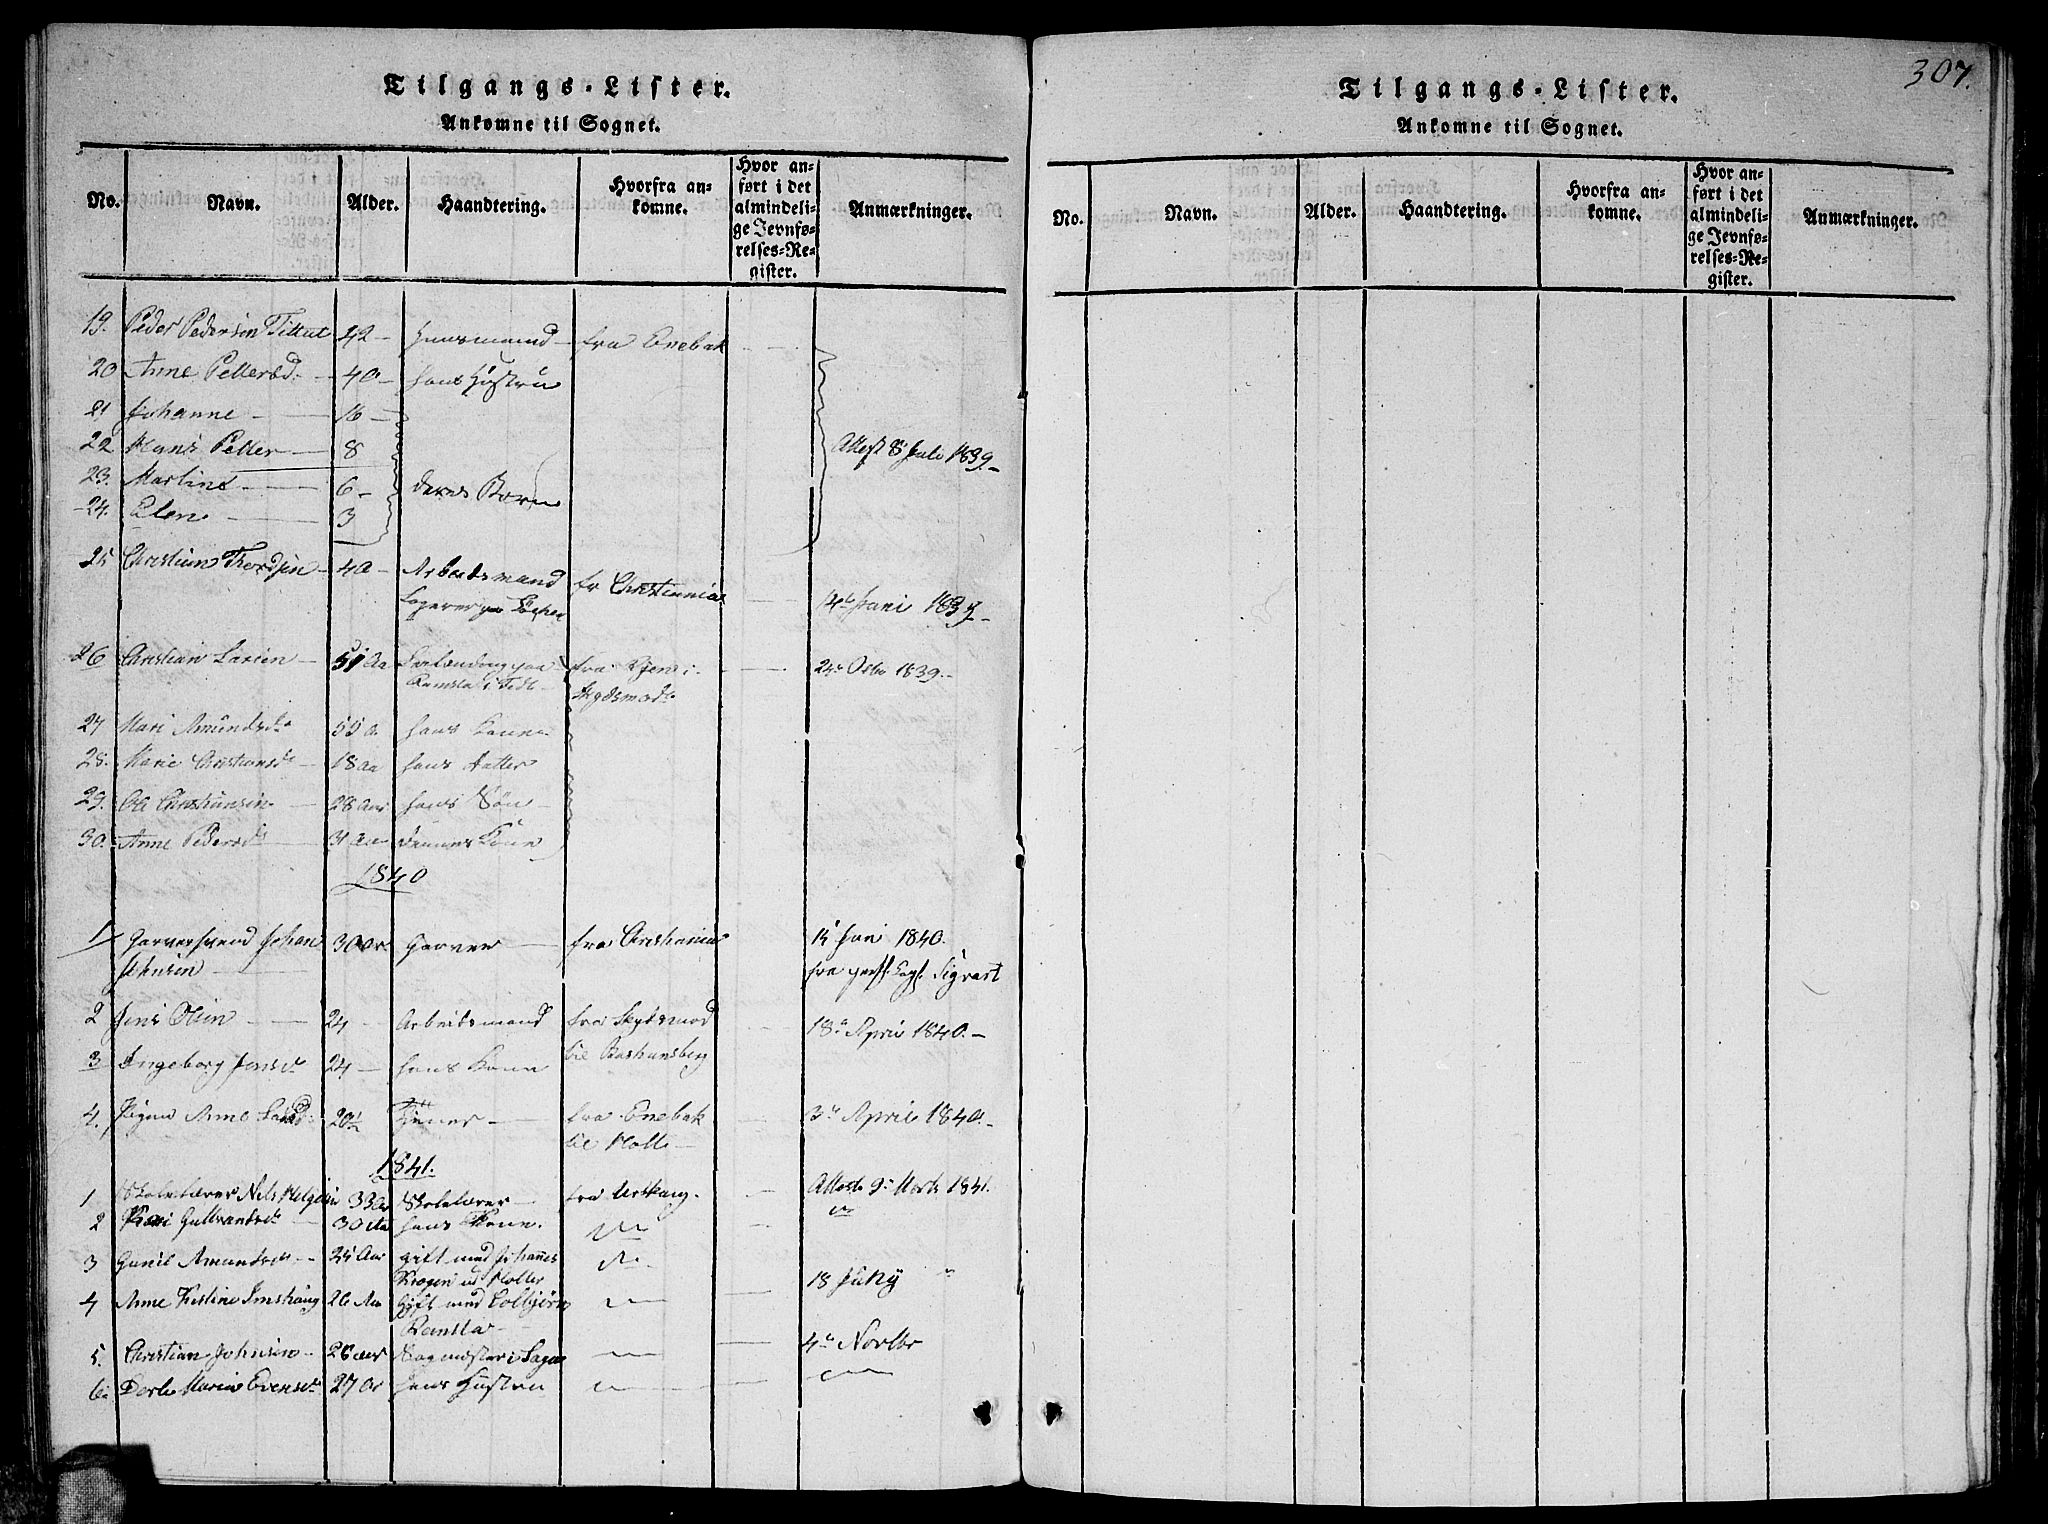 Tilgangs-Lister.
Ankomne til Sognet.
No. Navn. Alder. Haandtering. Hvorfra ankomne. Hvor anført i det almindelige Jevnførelses-Register. Anmærkninger.
19. Peder Pedersen 42 Huusmand fra Enebak
20 Anne Pettersd. 40 hans Hustru
21 Johanne 16
22 Hans Petter 8 Attest 8 Juli 1839
23. Martine 6 deres Børn
24. Elen 3
25 Christian Thordsen 40 Arbeidsmand fr Christiania
14de Juni 1839
26 Christian Larsen 51 Aa paa fra i 24de Octbr 1839.
Ramstad i
27 Mari Amundsdr 55 a hans Kone
28. Marie Christiansdr 18 Aa hans Datter
29. Ole Christiansen 28 Aar hans Søn
30. Anne Pedersdr 31 Aar dennes Kone
1840
1 Garversvend Johan 30 Aar Garver fra Christiania 15 Juni 1840.
Johnsen fra
2 Jens Olsen 24 Arbeidsmand fra Skydsmod 18de April 1840.
3 Ingeborg Jensdr 24 hans Kone til
4. Pigen Anne 20½ Tjener fra Enebak 3de April 1840.
til Holt
1841.
1 Skolelærer Nils Helgesen 33 Aar Skolelærer fra Urskoug. Attest 9de Marts 1841.
2 Kari Gulbrandsdr 30 Aa hans Kone.
3 Gunil Amundsdr 25 Aar gift med Johannes
Krogen
4 Anne Kirstine 26 Aa Gift med 18 July
Ramstad
5. Christian Johnsen 26 aar Sagmester i 4de Novbr
6. Dorte Marie Evensdr 27 Ar hans Hustru
307.
Tilgangs-Lister.
Ankomne til Sognet.
No. Navn. Alder. Haandtering. Hvorfra ankomne. Hvor anført i det almindelige Jevnførelses-Register. Anmærkninger.